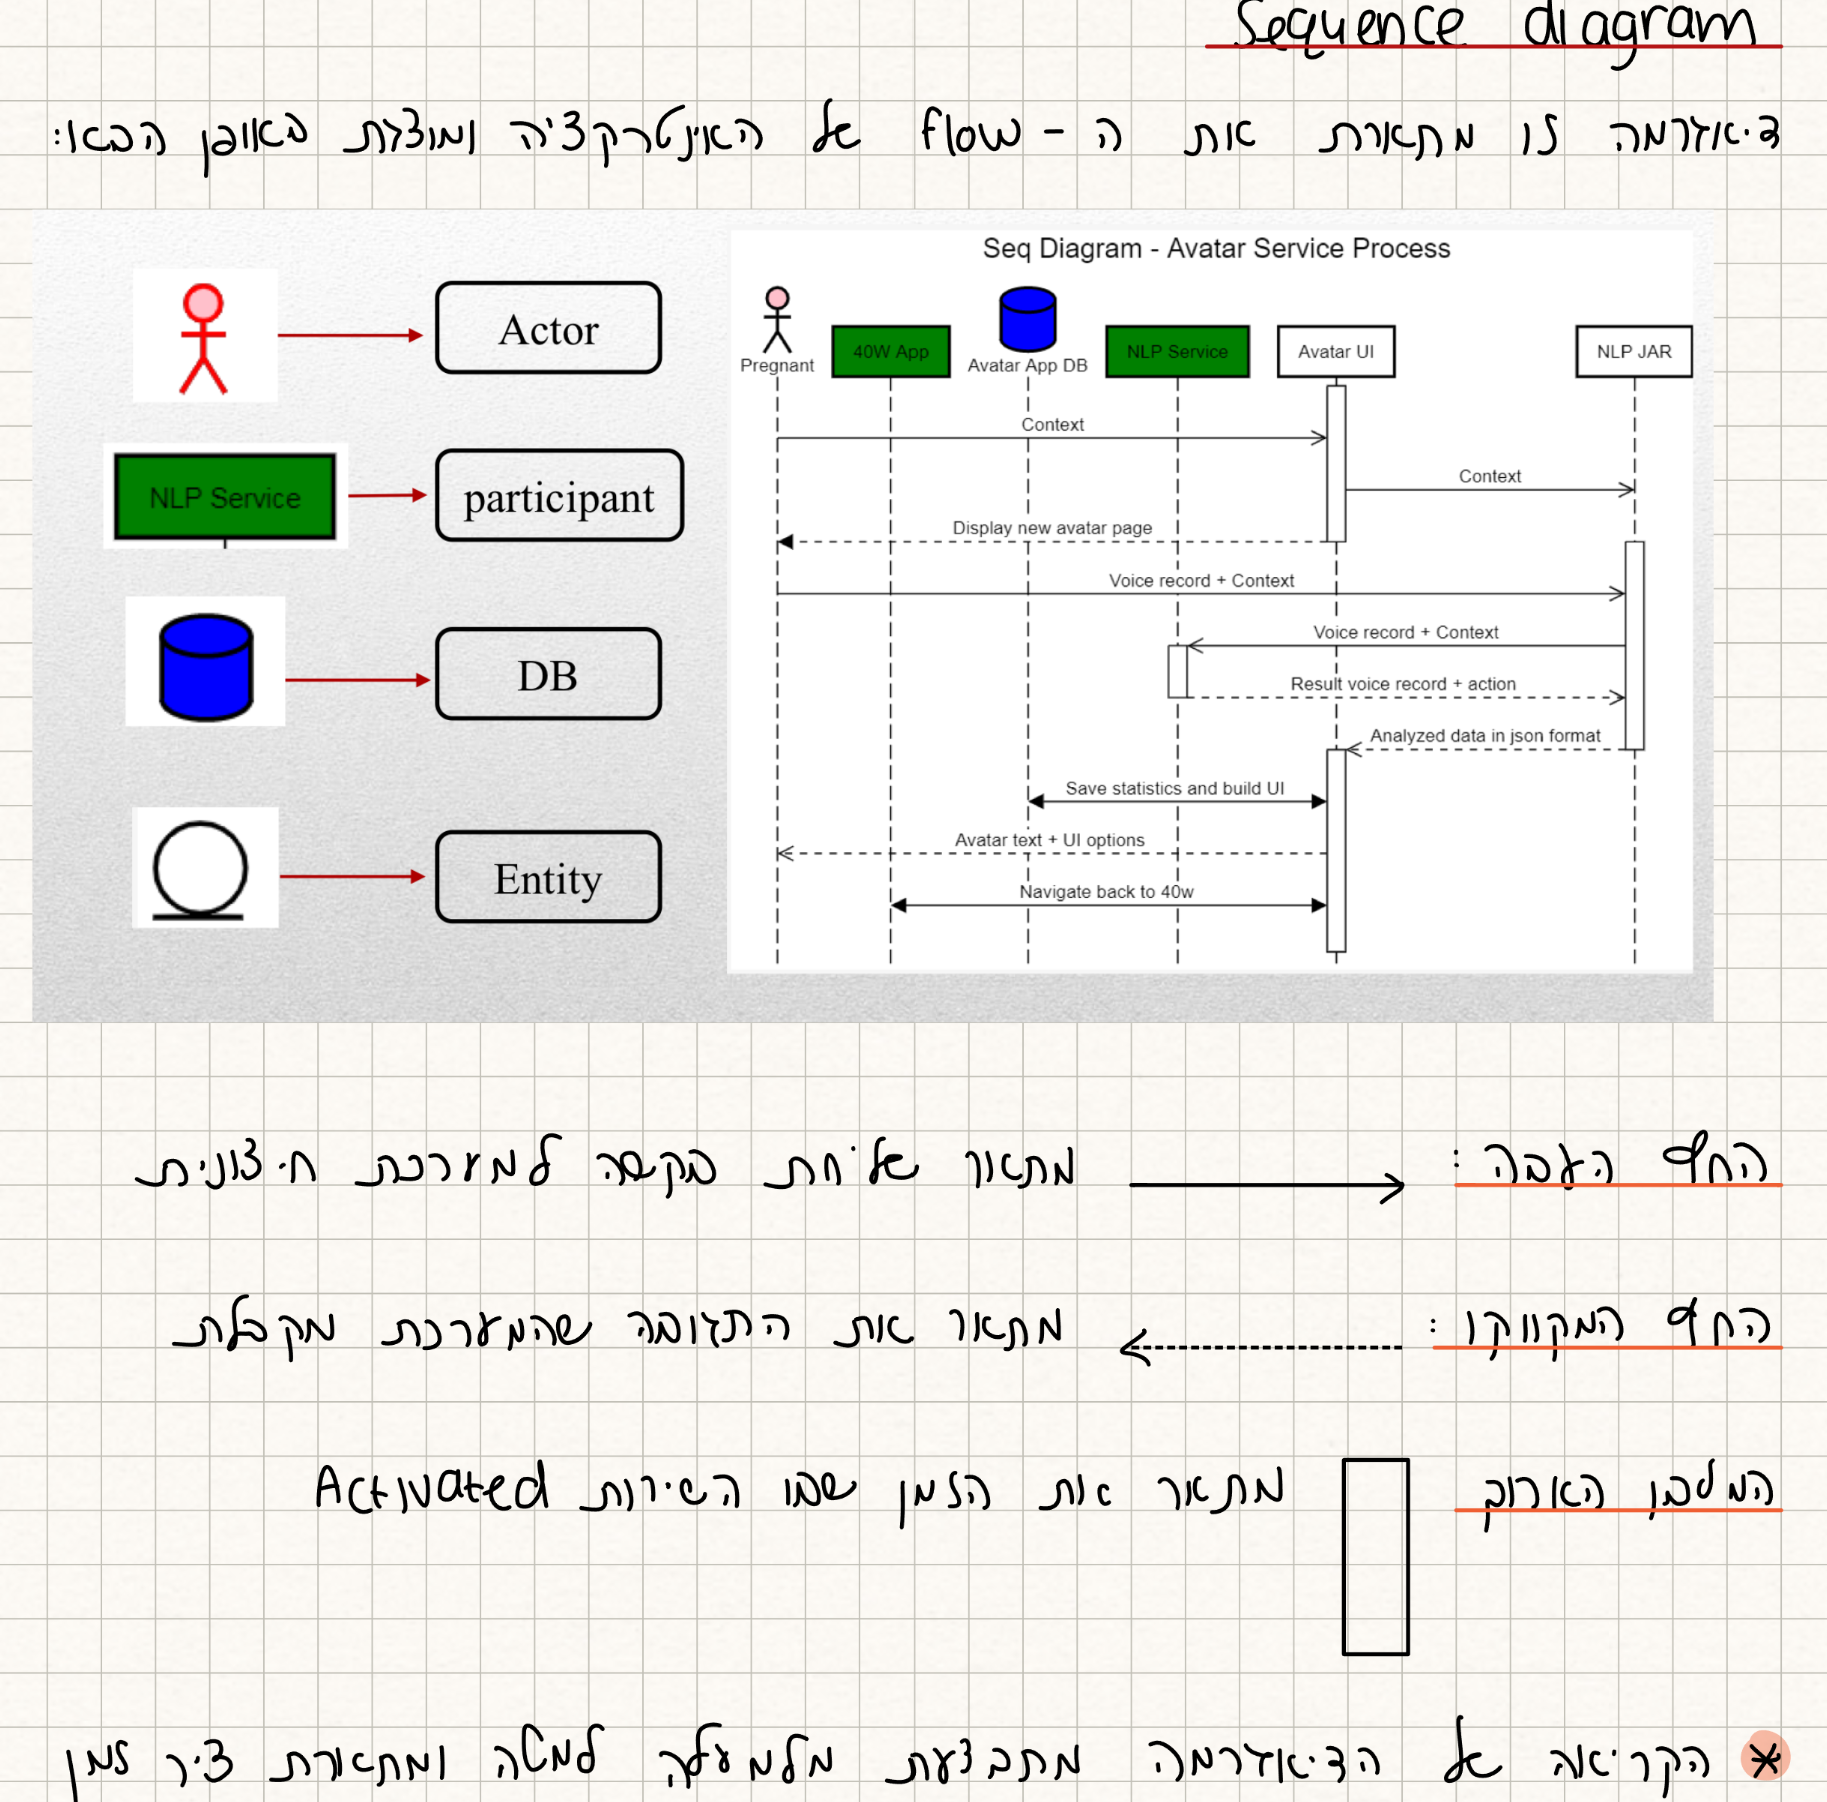 Sequence diagram
דיאגרמה זו מתארת את ה - flow של האינטרקציה ומוצגת באופן הבא:
Actor
NLP Service
participant
DB
Entity
Seq Diagram - Avatar Service Process
Pregnant
40W App
Avatar App DB
NLP Service
Avatar UI
NLP JAR
Context
Context
Display new avatar page
Voice record + Context
Voice record + Context
Result voice record + action
Analyzed data in json format
Save statistics and build UI
Avatar text + UI options
Navigate back to 40w
החץ העבה: מתאר שליחת בקשה למערכת חיצונית
החץ המקווקו: מתאר את התגובה שהמערכת מקבלת
המלבן הארוך מתאר את הזמן שבו השירות Activated
* הקריאה של הדיאגרמה מתבצעת מלמעלה למטה ומתארת ציר זמן